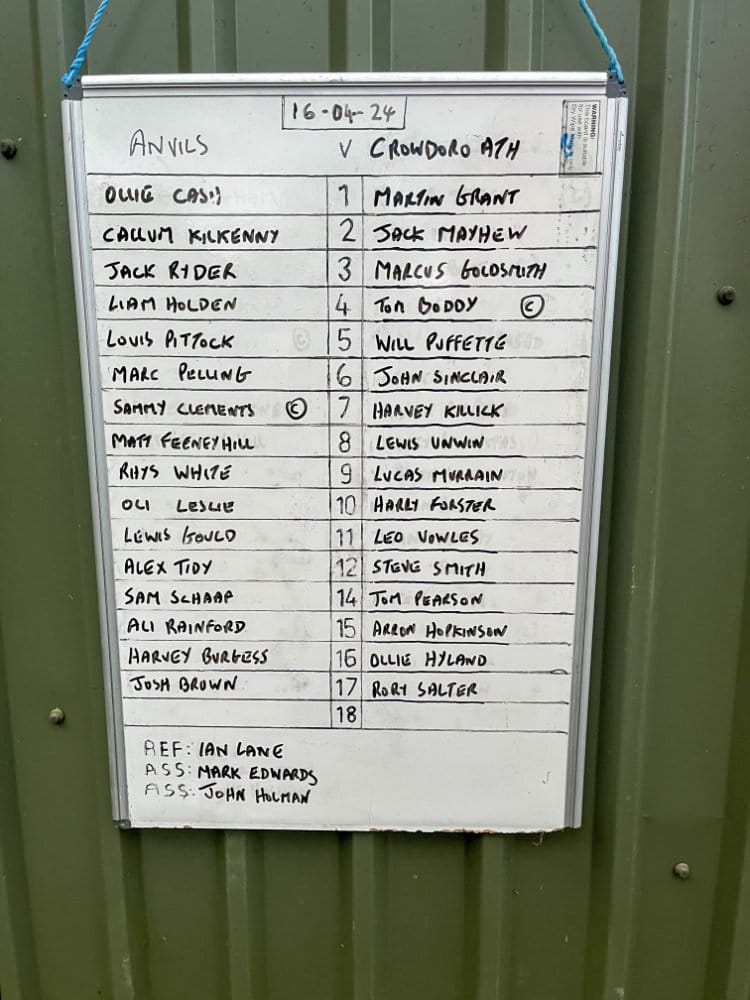 16-04-24
WARNING:
This board is suitable
for use with
Dry Wipe only
ANVILS V CROWDORO ATH
OLLIE CASH 1 MARTIN GRANT
CALLUM KILKENNY 2 JACK MAYHEW
JACK RYDER 3 MARCUS GOLDSMITH
LIAM HOLDEN 4 TOM BODDY C
LOUIS PITTOCK 5 WILL PUFFETTE
MARC PELLING 6 JOHN SINCLAIR
SAMMY CLEMENTS C 7 HARVEY KILLICK
MATT FEENEYHILL 8 LEWIS UNWIN
RHYS WHITE 9 LUCAS MURRAIN
OLI LESLIE 10 HARRY FORSTER
LEWIS GOULD 11 LEO VOWLES
ALEX TIDY 12 STEVE SMITH
SAM SCHAAP 14 TOM PEARSON
ALI RAINFORD 15 ARRON HOPKINSON
HARVEY BURGESS 16 OLLIE HYLAND
JOSH BROWN 17 RORY SALTER
18
REF: IAN LANE
ASS: MARK EDWARDS
ASS: JOHN HOLMAN